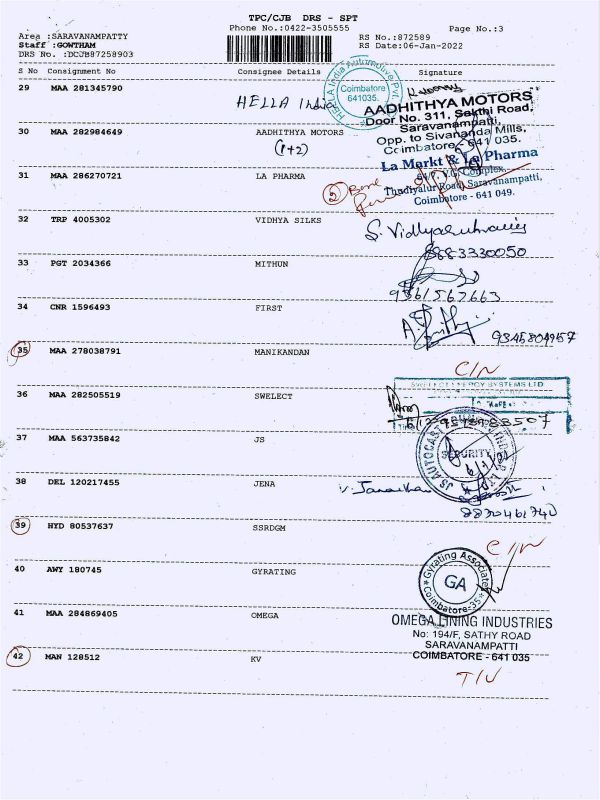 TPC/CJB DRS - SPT
Phone No.:0422-3505555
Page No.:3
Area :SARAVANAMPATTY
RS No.:872589
Staff :GOWTHAM
RS Date:06-Jan-2022
DRS No. :DCJB87258903
S No Consignment No Consignee Details Signature
29 MAA 281345790 HELLA India
HELLA India Automotive Pvt.
Coimbatore
641035.
AADHITHYA MOTORS
Door No. 311, Sakthi Road,
Saravanampatti,
Opp. to Sivananda Mills,
Coimbatore - 641 035.
30 MAA 282984649 AADHITHYA MOTORS
(1+2)
La Markt & La Pharma
V.C. Complex,
Thudiyalur Road, Saravanampatti,
Coimbatore - 641 049.
31 MAA 286270721 LA PHARMA
② Box
32 TRP 4005302 VIDHYA SILKS
8883330050
33 PGT 2034366 MITHUN
9361567663
34 CNR 1596493 FIRST
9345804957
35 MAA 278038791 MANIKANDAN
C/N
36 MAA 282505519 SWELECT
SWELECT ENERGY SYSTEMS LTD
37 MAA 563735842 JS
JS AUTOCAST
SECURITY
38 DEL 120217455 JENA
8870461740
39 HYD 80537637 SSRDGM
C/N
40 AWY 180745 GYRATING
Gyrating Associates
GA
Coimbatore-35
41 MAA 284869405 OMEGA
OMEGA LINING INDUSTRIES
No: 194/F, SATHY ROAD
SARAVANAMPATTI
COIMBATORE - 641 035
42 MAN 128512 KV
T/N